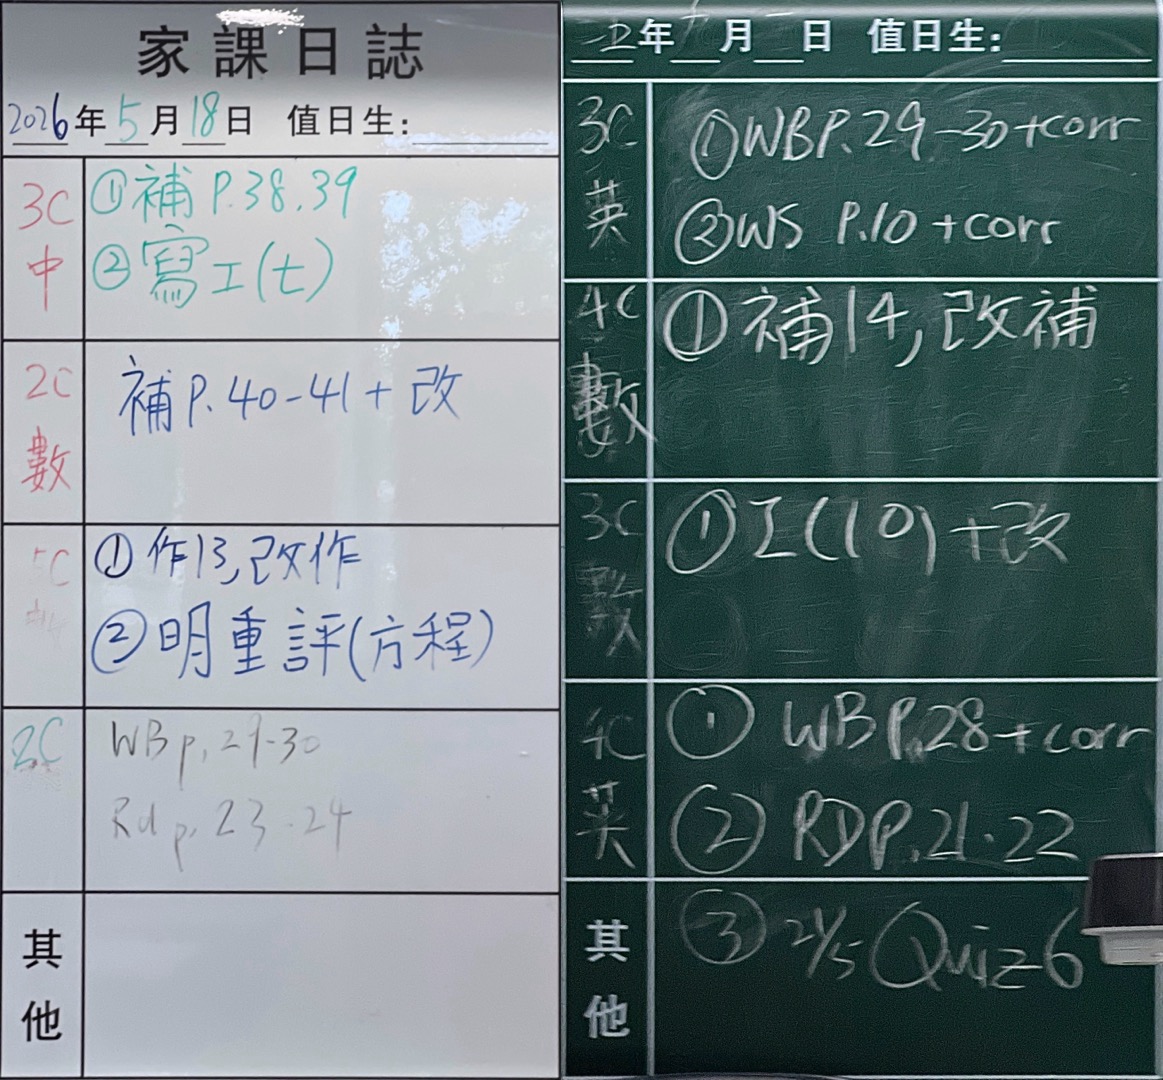 家課日誌
2026年5月18日 值日生:
3C
中
①補 P.38.39
②寫工(七)
2C
數
補 P.40-41 + 改
C
①作13,改作
②明重評(方程)
2C
WB p.29-30
Rd p.23-24
其他
年 月 日 值日生:
3C
英
①WB P.29-30+corr
②WS P.10 +corr
4C
數
①補14,改補
3C
數
①工(10)+改
4C
英
① WB P.28+corr
② RD P.21-22
其他
③ 21/5 Quiz 6